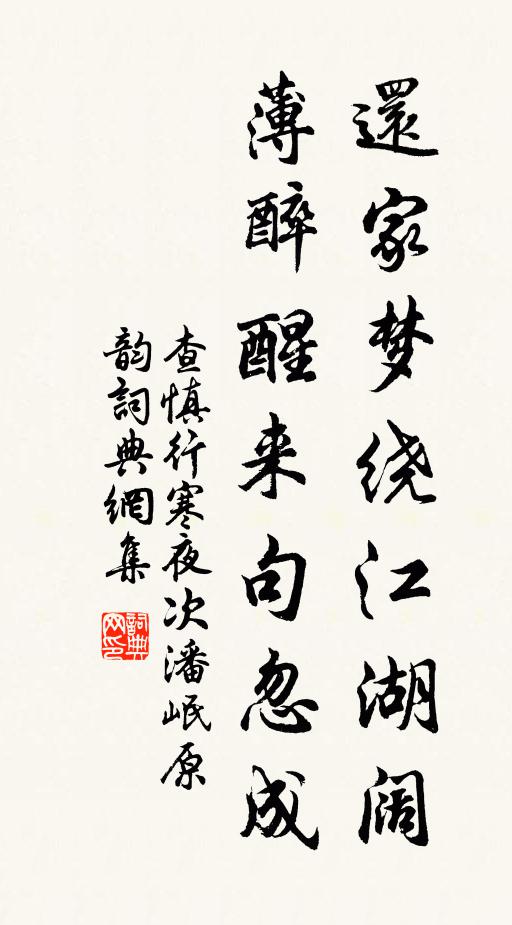 還家梦绕江湖阔
薄醉醒来句忽成
查慎行寒夜次潘岷原
韵詞典網集
詞典网印